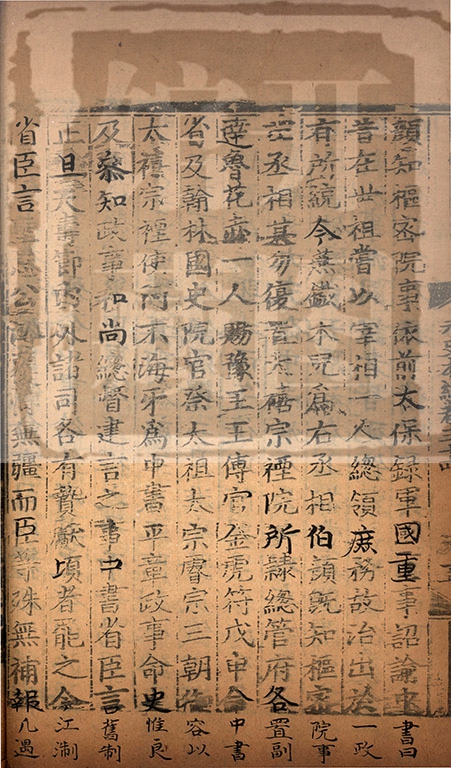 顔知樞密院事依前太保録軍國重事詔諭中書曰
昔在世祖嘗以宰相一人總領庶務故治出於一政
有所統今燕鐵木兒爲右丞相伯顔既知樞密院事
左丞相其勿復置太禧宗禋院所隷總管府各置副
達魯花赤一人賜豫王王傅官金虎符戊申命中書
省及翰林國史院官祭太祖太宗睿宗三朝御容以
太禧宗禋使阿不海牙爲中書平章政事命史惟良
及叅知政事和尚總督建言之事中書省臣言舊制
正旦天壽節内外諸司各有贄獻頃者罷之今江淛
省臣言聖恩公溥覆幬無疆而臣等殊無補報凡遇